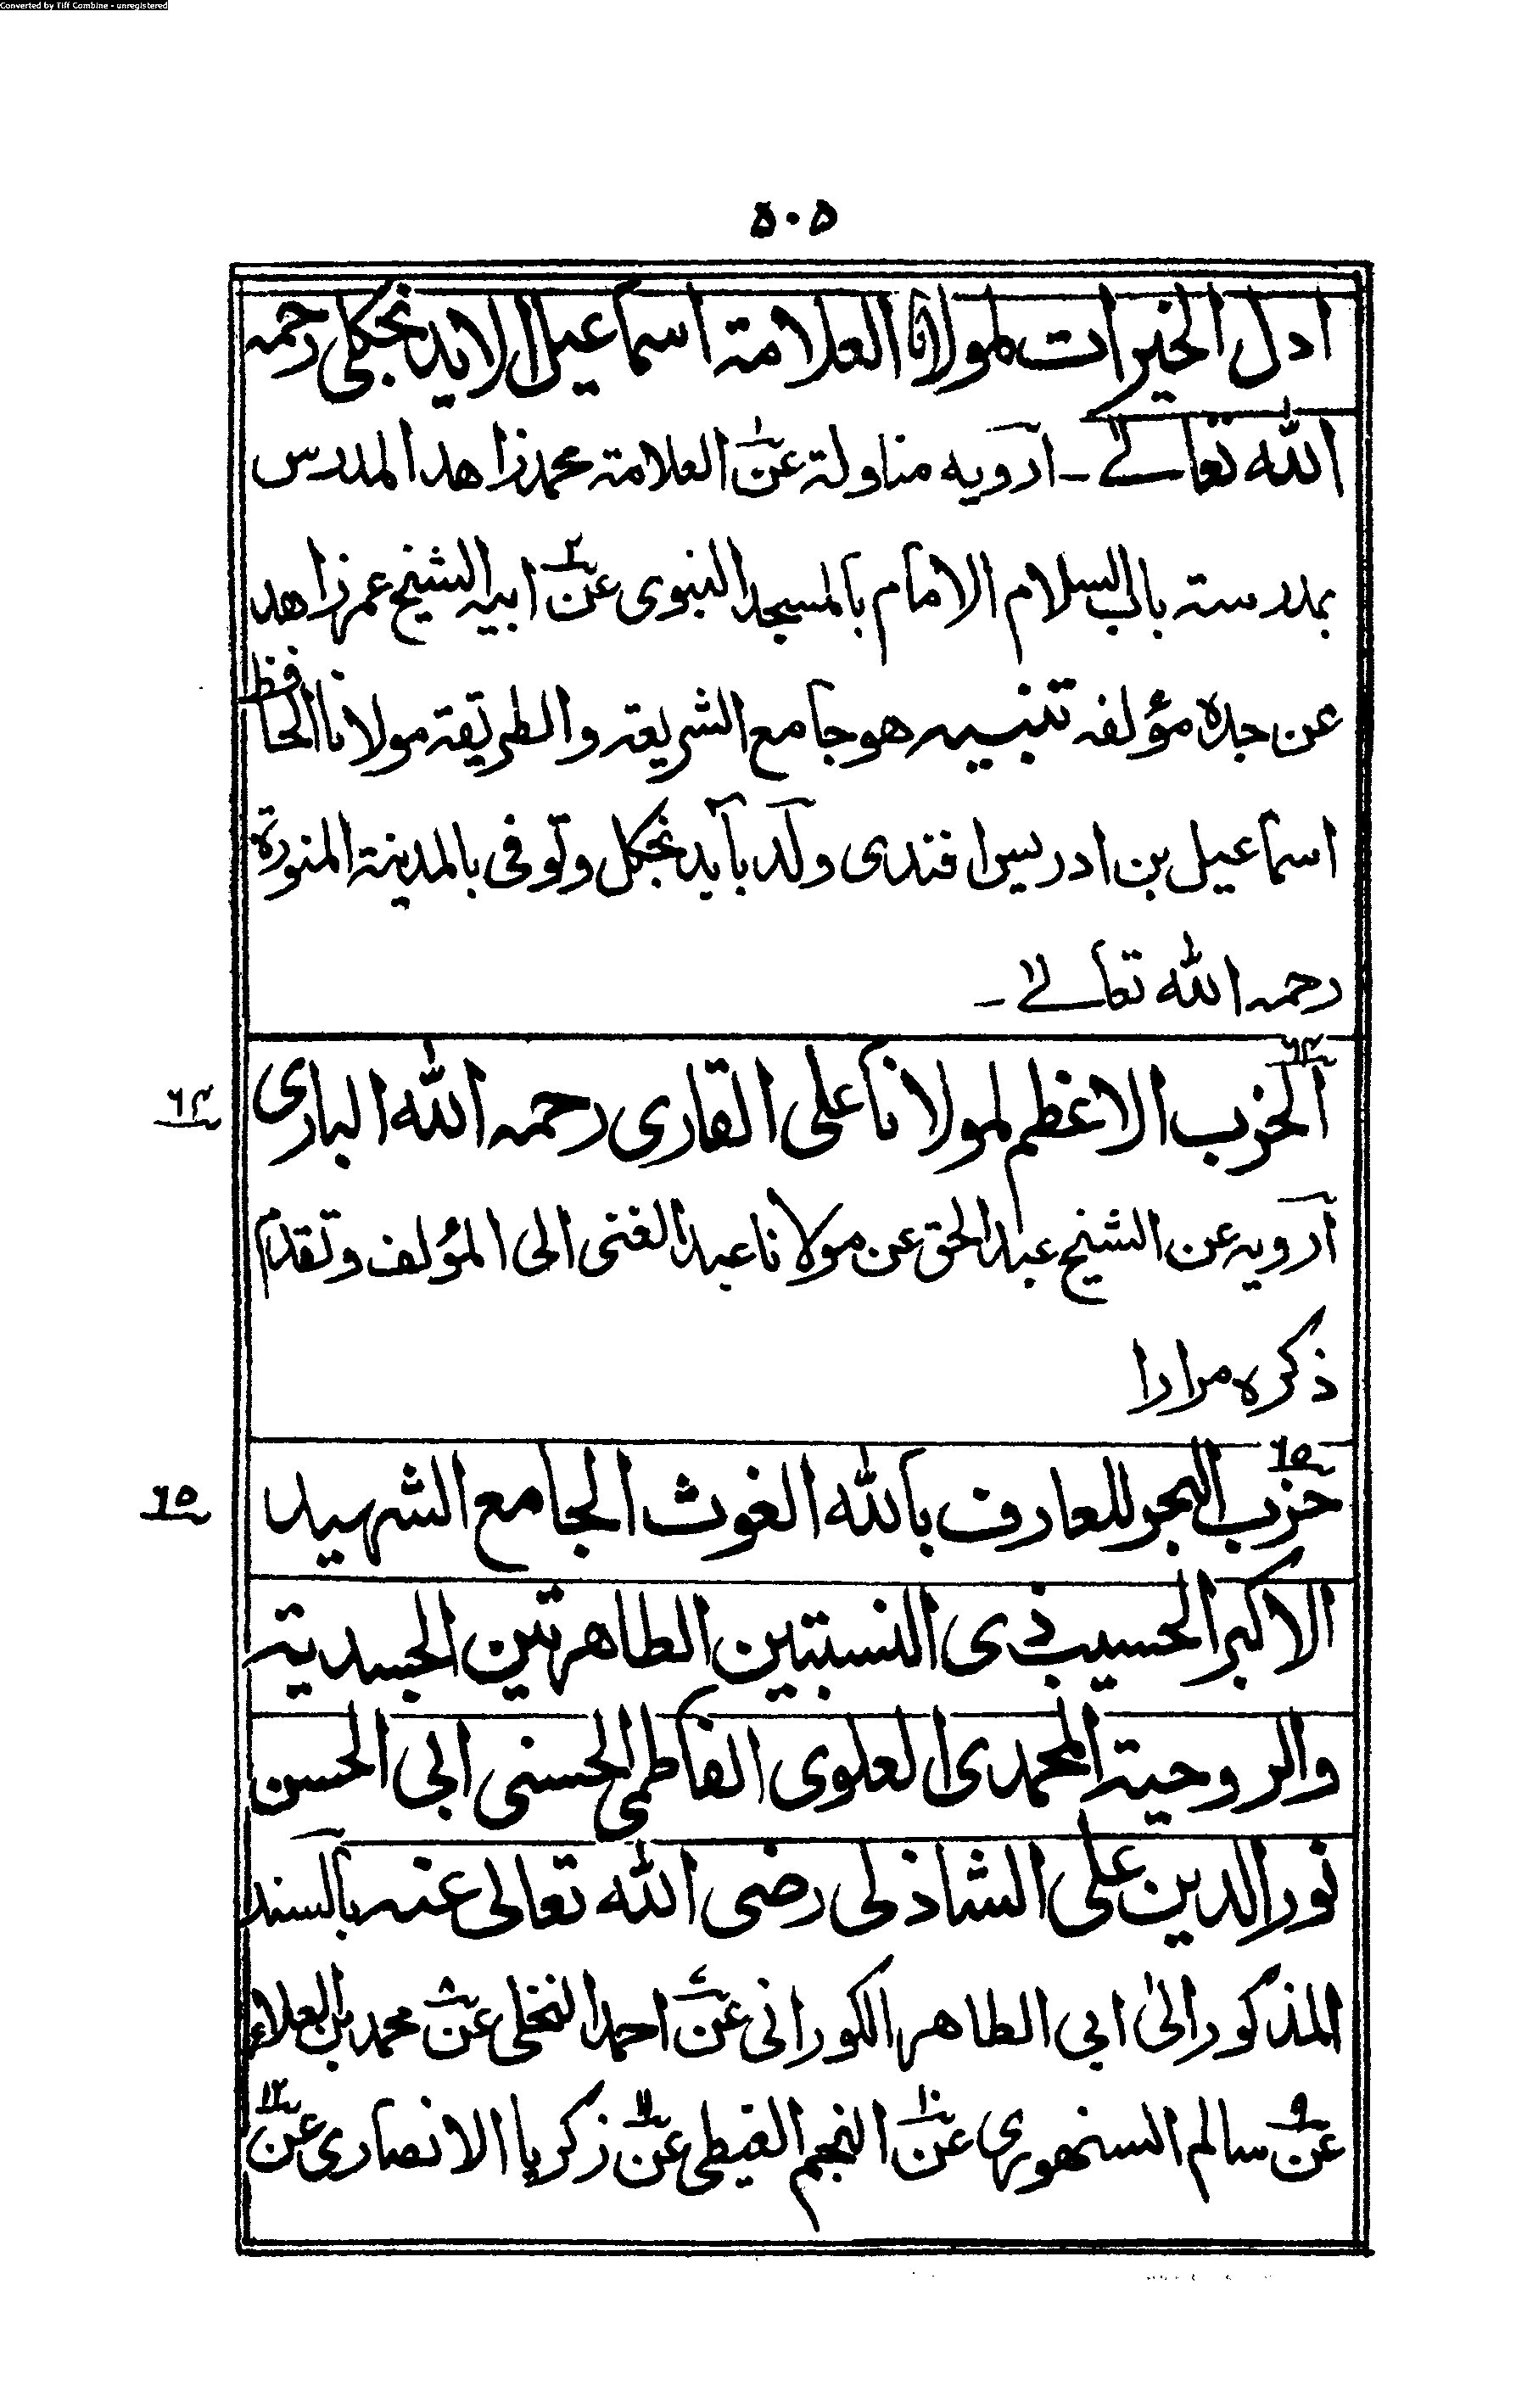 Converted by Tiff Combine - unregistered
٥٠٥
ادل الخيرات لمولانا العلامة اسماعيل الايدنجكلى رحمه
الله تعالےٰ ـ ارويه مناولة عن١ العلامة محمد زاهد المدرس
بمدرسة باب السلام الامام بالمسجد النبوى عن٢ ابيه الشيخ عمر زاهد
عن جده مؤلفه تنبيه هو جامع الشريعة والطريقة مولانا الحافظ
اسماعيل بن ادريس افندى ولد بآيدنجكل وتوفى بالمدينة المنورة
رحمه الله تعالےٰ ـ
٦٤ الحزب الاعظم لمولانا على القارى رحمه الله البارى ٦٤
ارويه عن الشيخ عبد الحق عن مولانا عبد الغنى الى المؤلف وتقدم
ذكره مرارا
٦٥ حزب البحر للعارف بالله الغوث الجامع الشهيد ٦٥
الاكبر الحسيب ذى النسبتين الطاهرتين الجسدية
والروحية المحمدى العلوى الفاطمى الحسنى ابى الحسن
نور الدين على الشاذلى رضى الله تعالى عنه بالسند
المذكور الىٰ ابى الطاهر الكورانى عن٧ احمد النخلى عن٨ محمد بن العلاء
عن٩ سالم السنهورى عن١٠ النجم الغيطى عن١١ زكريا الانصارى عن١٢